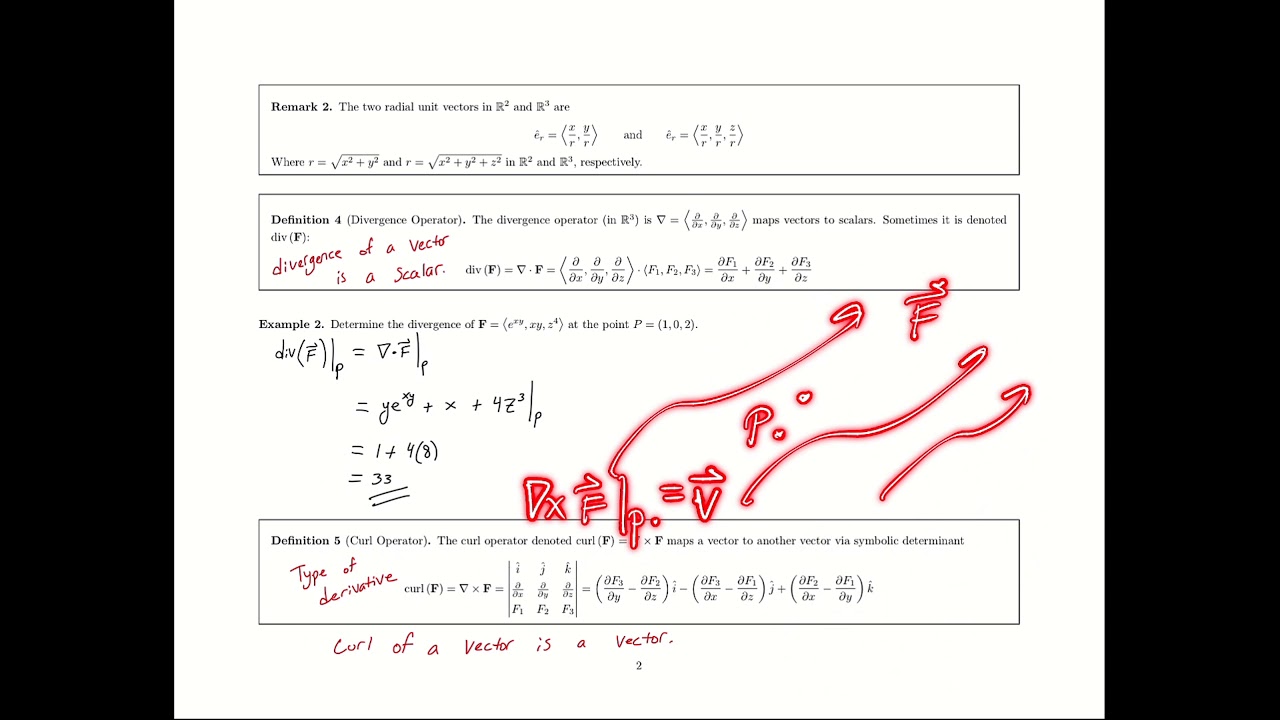 Remark 2. The two radial unit vectors in ℝ² and ℝ³ are
ê_r = ⟨x/r, y/r⟩ and ê_r = ⟨x/r, y/r, z/r⟩
Where r = √(x² + y²) and r = √(x² + y² + z²) in ℝ² and ℝ³, respectively.
Definition 4 (Divergence Operator). The divergence operator (in ℝ³) is ∇ = ⟨∂/∂x, ∂/∂y, ∂/∂z⟩ maps vectors to scalars. Sometimes it is denoted
div (F):
divergence of a vector
is a scalar.
div (F) = ∇ · F = ⟨∂/∂x, ∂/∂y, ∂/∂z⟩ · ⟨F₁, F₂, F₃⟩ = ∂F₁/∂x + ∂F₂/∂y + ∂F₃/∂z
Example 2. Determine the divergence of F = ⟨e^{xy}, xy, z⁴⟩ at the point P = (1, 0, 2).
div(F⃗)|_p = ∇·F⃗|_p
= ye^{xy} + x + 4z³|_p
= 1 + 4(8)
= 33
F⃗
P.
∇× F⃗|_p. = V⃗
Definition 5 (Curl Operator). The curl operator denoted curl (F) = × F maps a vector to another vector via symbolic determinant
Type of
derivative
curl (F) = ∇ × F = | î ĵ k̂ ; ∂/∂x ∂/∂y ∂/∂z ; F₁ F₂ F₃ | = (∂F₃/∂y − ∂F₂/∂z) î − (∂F₃/∂x − ∂F₁/∂z) ĵ + (∂F₂/∂x − ∂F₁/∂y) k̂
Curl of a vector is a vector.
2